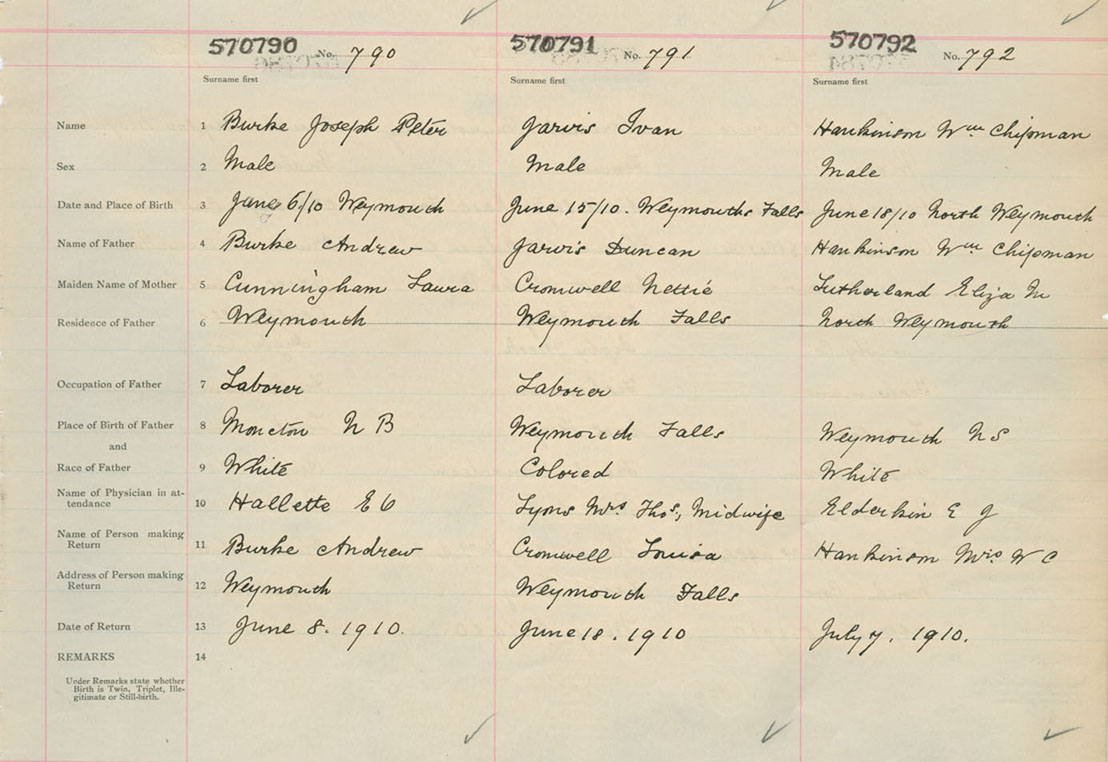 570790 No. 790 570791 No. 791 570792 No. 792
Surname first Surname first Surname first
Name 1 Burke Joseph Peter Jarvis Ivan Hankinson Wm Chipman
Sex 2 Male Male Male
Date and Place of Birth 3 June 6/10 Weymouth June 15/10. Weymouths Falls June 18/10 North Weymouth
Name of Father 4 Burke Andrew Jarvis Duncan Hankinson Wm Chipman
Maiden Name of Mother 5 Cunningham Laura Cromwell Nettie Sutherland Eliza M
Residence of Father 6 Weymouth Weymouth Falls North Weymouth
Occupation of Father 7 Laborer Laborer
Place of Birth of Father 8 Moncton N B Weymouth Falls Weymouth N S
and
Race of Father 9 White Colored White
Name of Physician in at-
tendance 10 Hallette E O Lyons Mrs Thos, Midwife Elderkin E J
Name of Person making
Return 11 Burke Andrew Cromwell Louisa Hankinson Mrs W C
Address of Person making
Return 12 Weymouth Weymouth Falls
Date of Return 13 June 8. 1910. June 18. 1910 July 7. 1910.
REMARKS 14
Under Remarks state whether
Birth is Twin, Triplet, Ille-
gitimate or Still-birth.